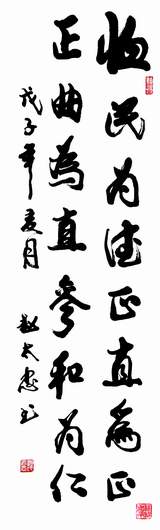 恤民为德正直为正
正曲為直参和为仁
戊子年夏月